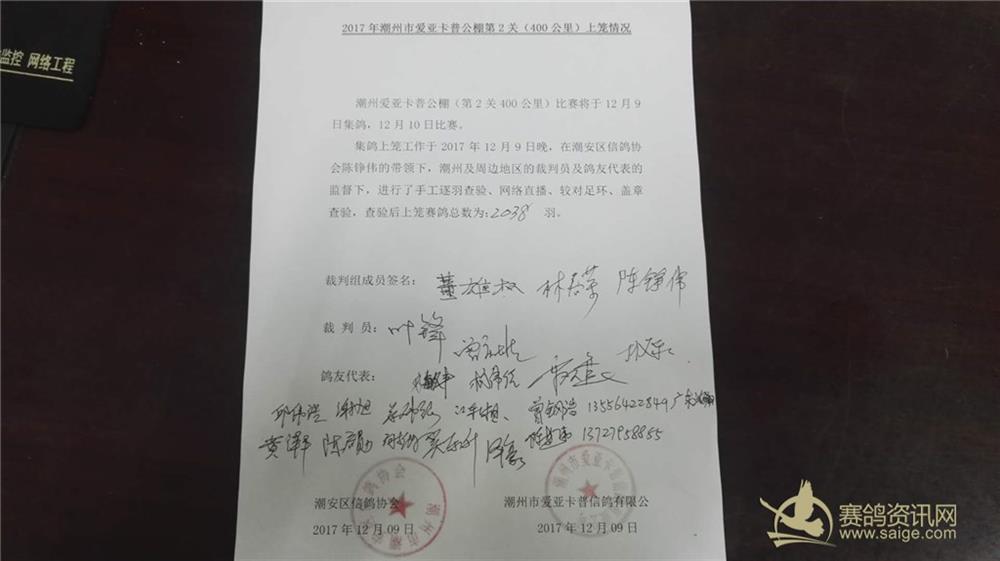 监控 网络工程
2017年潮州市爱亚卡普公棚第2关（400公里）上笼情况
潮州爱亚卡普公棚（第2关400公里）比赛将于12月9
日集鸽，12月10日比赛。
集鸽上笼工作于2017年12月9日晚，在潮安区信鸽协
会陈铮伟的带领下，潮州及周边地区的裁判员及鸽友代表的
监督下，进行了手工逐羽查验、网络直播、较对足环、盖章
查验，查验后上笼赛鸽总数为:2038 羽。
裁判组成员签名： 董雄叔 林春荣 陈铮伟
裁 判 员：叶锋
鸽友代表：
邱伟浩 谢旭 曾钢浩 13556422849
黄泽平 陈 13727958855
潮安区信鸽协会 潮州市爱亚卡普信鸽有限公
2017年12月09日 2017年12月09日
赛鸽资讯网
www.saige.com